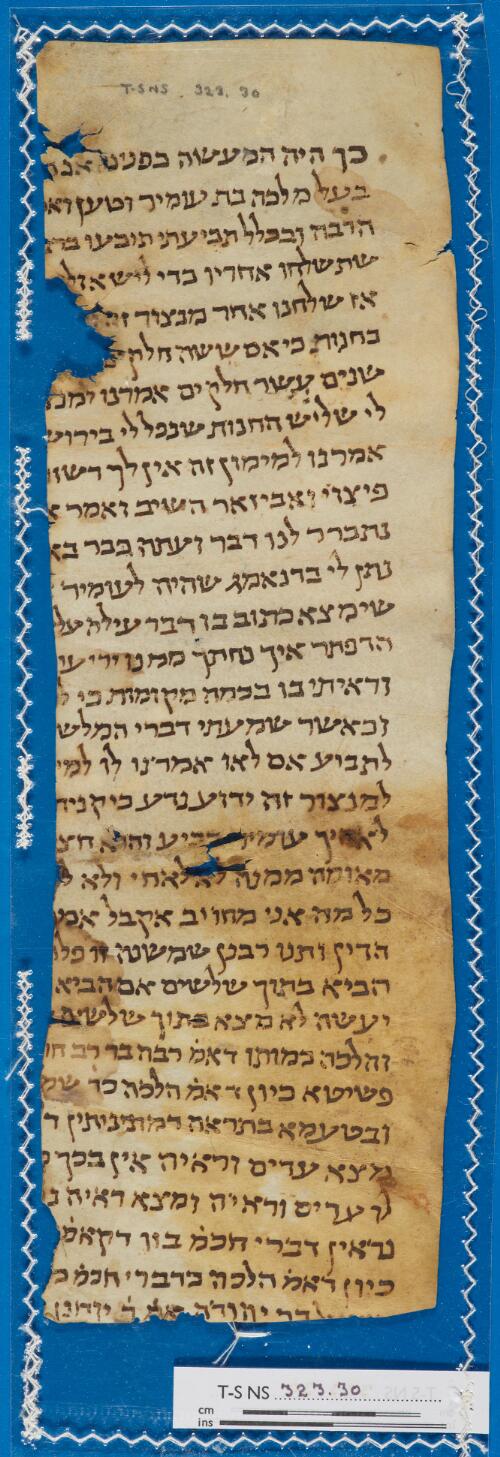 T-S NS 323.30
כך היה המעשה בפנינו
בעל מלכה בת עומיר וטען
הרבה ובכלל תביעתי תובעו
שתשלחו אחריו כדי לישאול
אז שלחנו אחר מנצור זה
בחנות כי אם ששה חלקים
שנים עשר חלקים אמרנו
לי שליש החנות שנפל לי
אמרנו למימון זה אין לך
פיצוי ואביזאר השיב ואמר
נתברר לנו דבר ועתה כבר
נתן לי ברנאמג שהיה לעומיר
שימצא כתוב בו דבר עילה
הדפתר איך נחתך ממנו
וראיתי בו בכמה מקומות כי
וכאשר שמעתי דברי
לתביע אם לאו אמרנו לו
למנצור זה ידוע נדע
לאחיך עומיר רביע והוא
מאומה ממנה לא לאחי ולא
כל מה אני מחוייב אקבל
הדין ותנו רבנן שמשנה זו
הביא בתוך שלשים אם הביא
יעשה לא מצא בתוך
והלכה כמותו דאמ רבה בר רב
פשיטא כיון דאמ הלכה כר
ובטעמא בתראה דמתניתין
מצא עדים וראיה אין בכך
לי עדים וראיה ומצא ראיה
נראין דברי חכמ בזו
כיון דאמ הלכה כדברי חכמ
יהודה
T-S NS 323.30
cm
ins